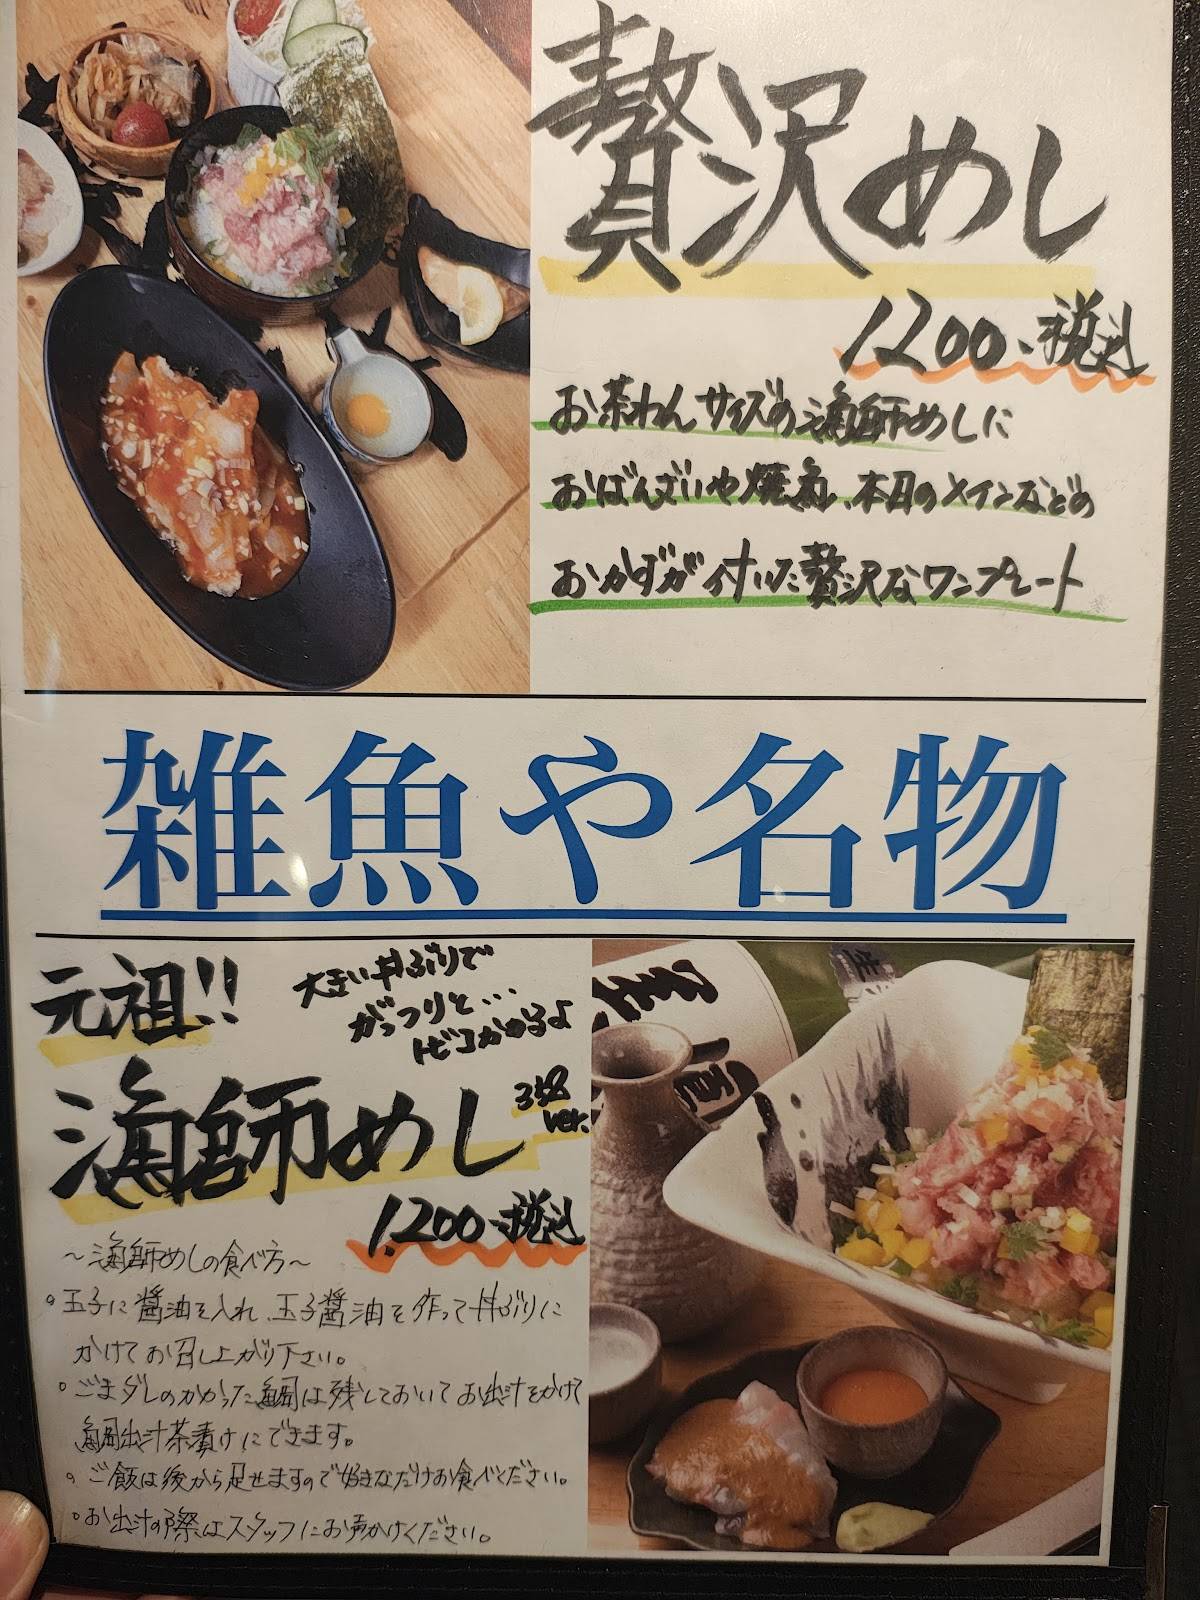 贅沢めし
1200、税込
お茶わんサイズの漁師めしに
おばんざいや焼魚、本日のメインなどの
おかずが付いた贅沢なワンプレート
雑魚や名物
元祖!!
大きい丼ぶりで
がっつりと…
漁師めし
ver.
1,200、税込
〜漁師めしの食べ方〜
。玉子に醤油を入れ、玉子醤油を作って丼ぶりに
かけてお召し上がり下さい。
。ごまダレのかかった鯛は残しておいてお出汁をかけて
鯛出汁茶漬けにできます。
。ご飯は後から足せますので好きなだけお食べください。
。お出汁の際はスタッフにお声かけください。